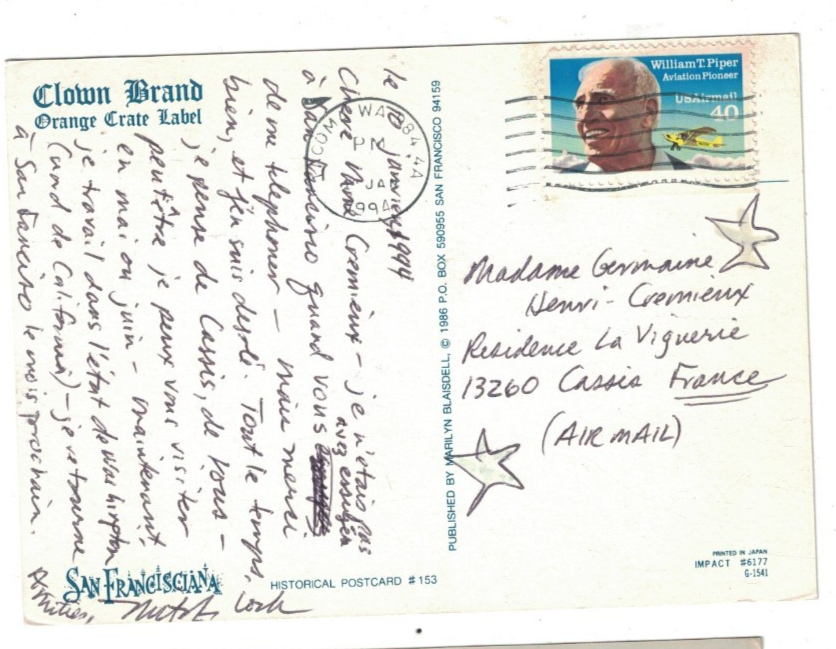 Clown Brand
Orange Crate Label
le janvier 1994
Chère Mme Cremieux - je n'étais pas
à San Francisco quand vous avez essayez
de me telephoner - mais merci
bien, et j'en suis desolé. Tout le temps,
je pense de Cassis, de vous -
peutêtre je peux vous visiter
en mai ou juin - maintenant
je travail dans l'état de Washington
(nord de California) - je retourne
à San Francisco le mois prochain.
Amitiés,
SAN FRANCISCIANA
HISTORICAL POSTCARD #153
PUBLISHED BY MARILYN BLAISDELL, © 1986 P.O. BOX 590955 SAN FRANCISCO 94159
TACOMA WA 984 4A
JA
1994
William T. Piper
Aviation Pioneer
USAirmail
40
Madame Germaine
Henri-Cremieux
Residence La Viguerie
13260 Cassis France
(AIR MAIL)
PRINTED IN JAPAN
IMPACT #6177
G-1541